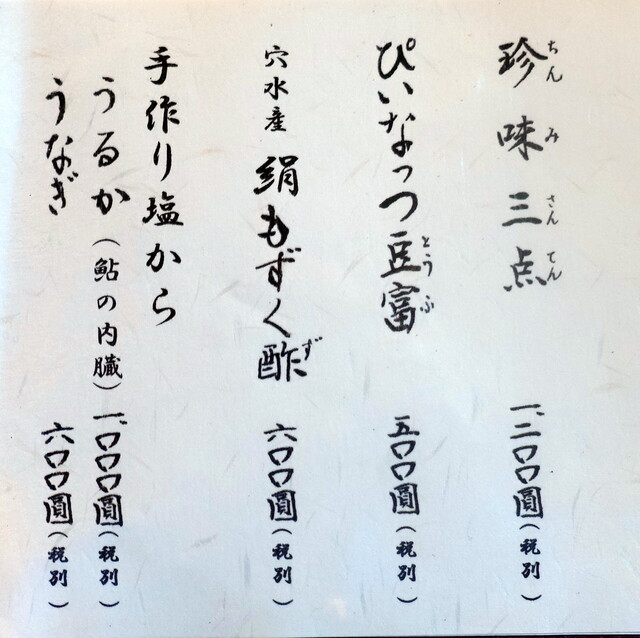 珍味三点 一、二〇〇圓(税別)
ちんみさんてん
ぴいなっつ豆富 五〇〇圓(税別)
とうふ
穴水産 絹もずく酢 六〇〇圓(税別)
ず
手作り塩から
うるか(鮎の内臓) 一、〇〇〇圓(税別)
うなぎ 六〇〇圓(税別)